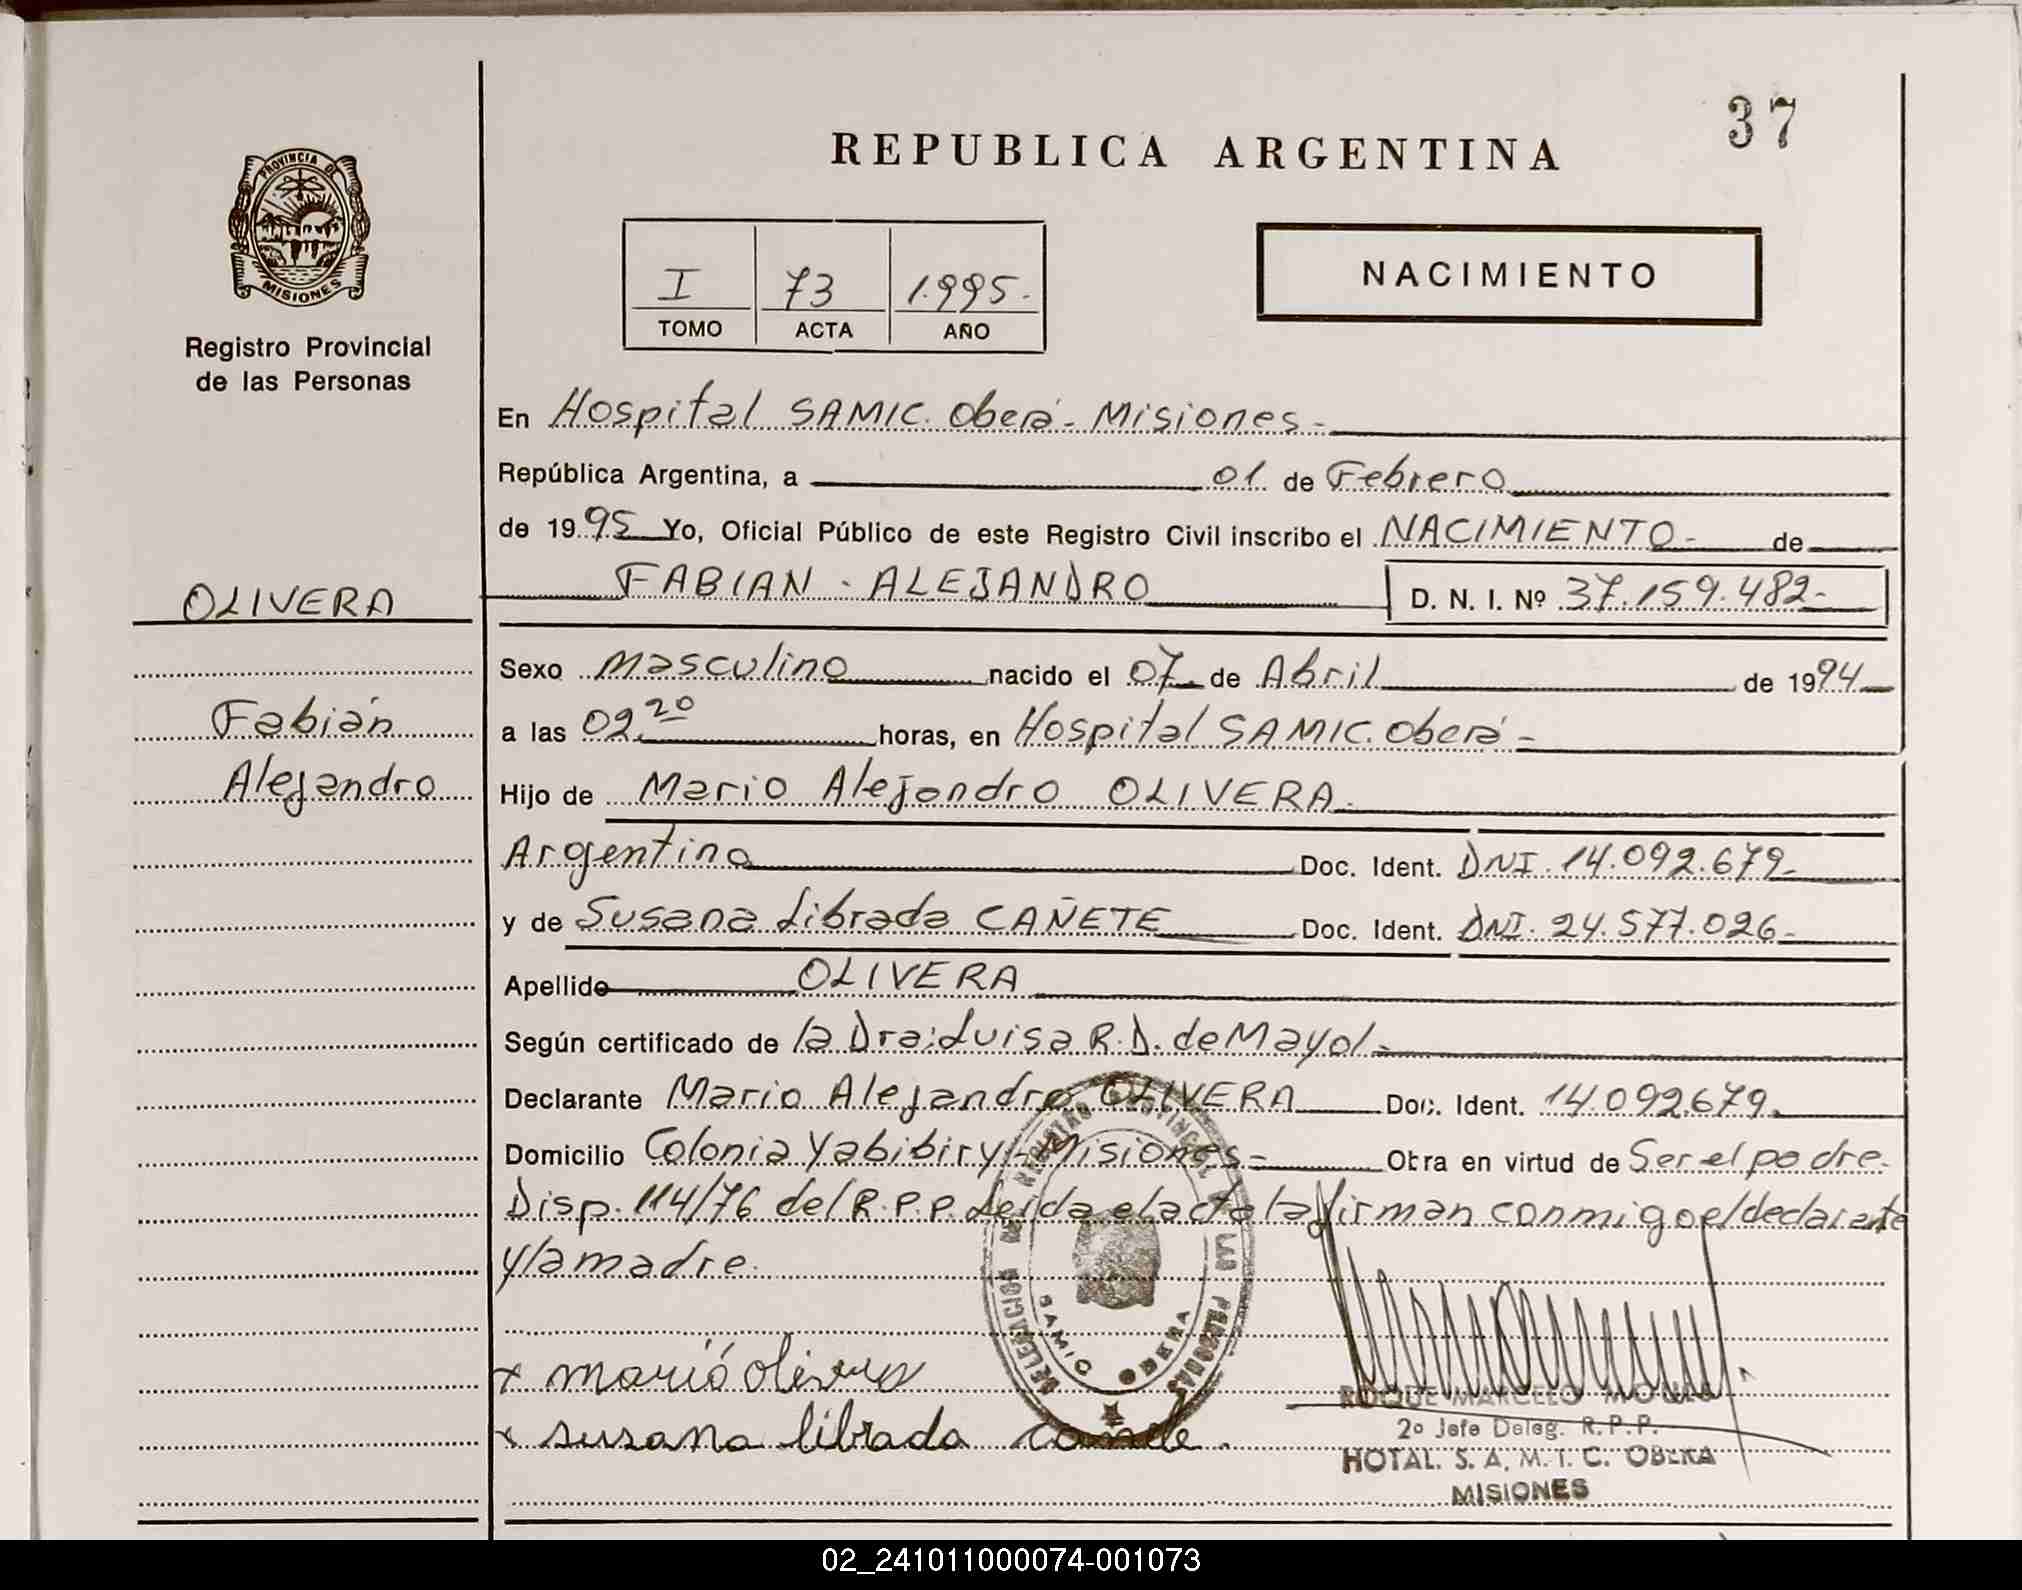 37
REPUBLICA ARGENTINA
PROVINCIA DE
MISIONES
Registro Provincial
de las Personas
I 73 1.995.-
TOMO ACTA AÑO
NACIMIENTO
En Hospital SAMIC. Oberá - Misiones.-
República Argentina, a 01 de Febrero
de 1995 Yo, Oficial Público de este Registro Civil inscribo el NACIMIENTO- de
OLIVERA
FABIAN - ALEJANDRO D. N. I. Nº 37.159.482-
Sexo Masculino nacido el 07 de Abril de 1994
Fabián
a las 02.20 horas, en Hospital SAMIC. Oberá -
Alejandro
Hijo de Mario Alejandro OLIVERA.
Argentino Doc. Ident. DNI. 14.092.679.-
y de Susana Librada CAÑETE Doc. Ident. DNI. 24.577.026-
Apellido OLIVERA
Según certificado de la Dra: Luisa R. D. de Mayol.-
Declarante Mario Alejandro OLIVERA Doc. Ident. 14.092.679.
Domicilio Colonia Yabibiry - Misiones.- Obra en virtud de Ser el padre.
Disp. 114/76 del R.P.P. Leida el acta la firman conmigo el declarante
y la madre.
DELEGACION DEL REGISTRO PROVINCIAL DE LAS PERSONAS
SAMIC OBERA
x mario olivera
x susana librada cañete.
ROQUE MARCELO
2º Jefe Deleg. R.P.P.
HOTAL. S. A. M. I. C. OBERA
MISIONES
02_241011000074-001073